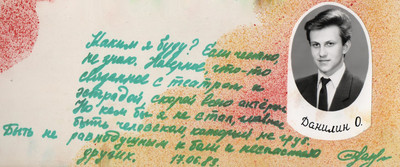 Каким я буду? Если честно,
не знаю. Наверное что-то
связанное с театром и
эстрадой, скорей всего актёром.
Но кем бы я не стал, главное
быть человеком, который не груб.
Быть не равнодушным к боли и несчастью
других.
17.06.89.
Данилин О.